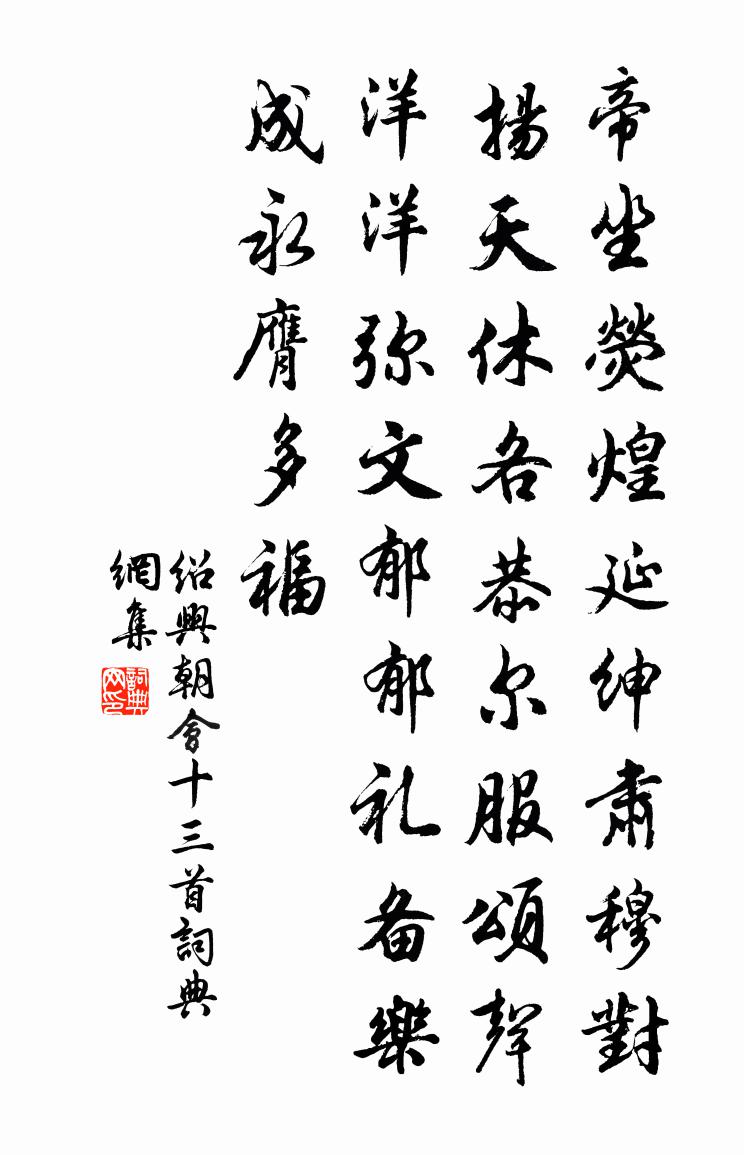 帝坐熒煌延紳肅穆對
揚天休各恭尔服頌聲
洋洋弥文郁郁礼备樂
成永膺多福
紹興朝會十三首詞典
網集
詞典
网印